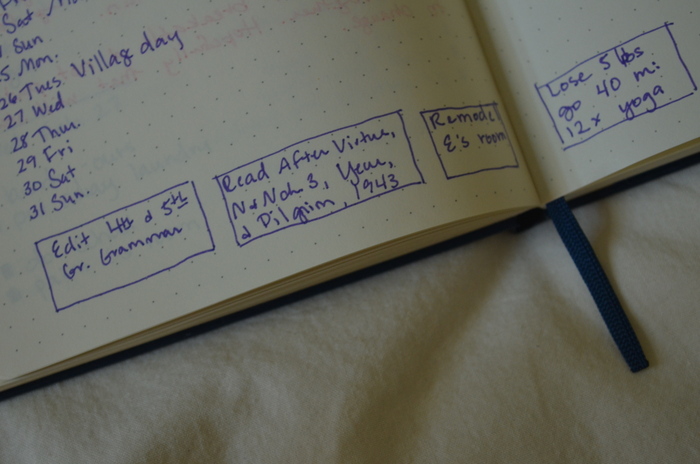 Sat
Sun
Mon.
26 Tues Village day
27. Wed
28. Thur.
29 Fri
30. Sat
31 Sun.
Edit 4th & 5th
Gr. Grammar
Read After Virtue,
3,
& Pilgrim, 1943
Remodel
E's room
Lose 5 lbs
go 40 mi
12x yoga